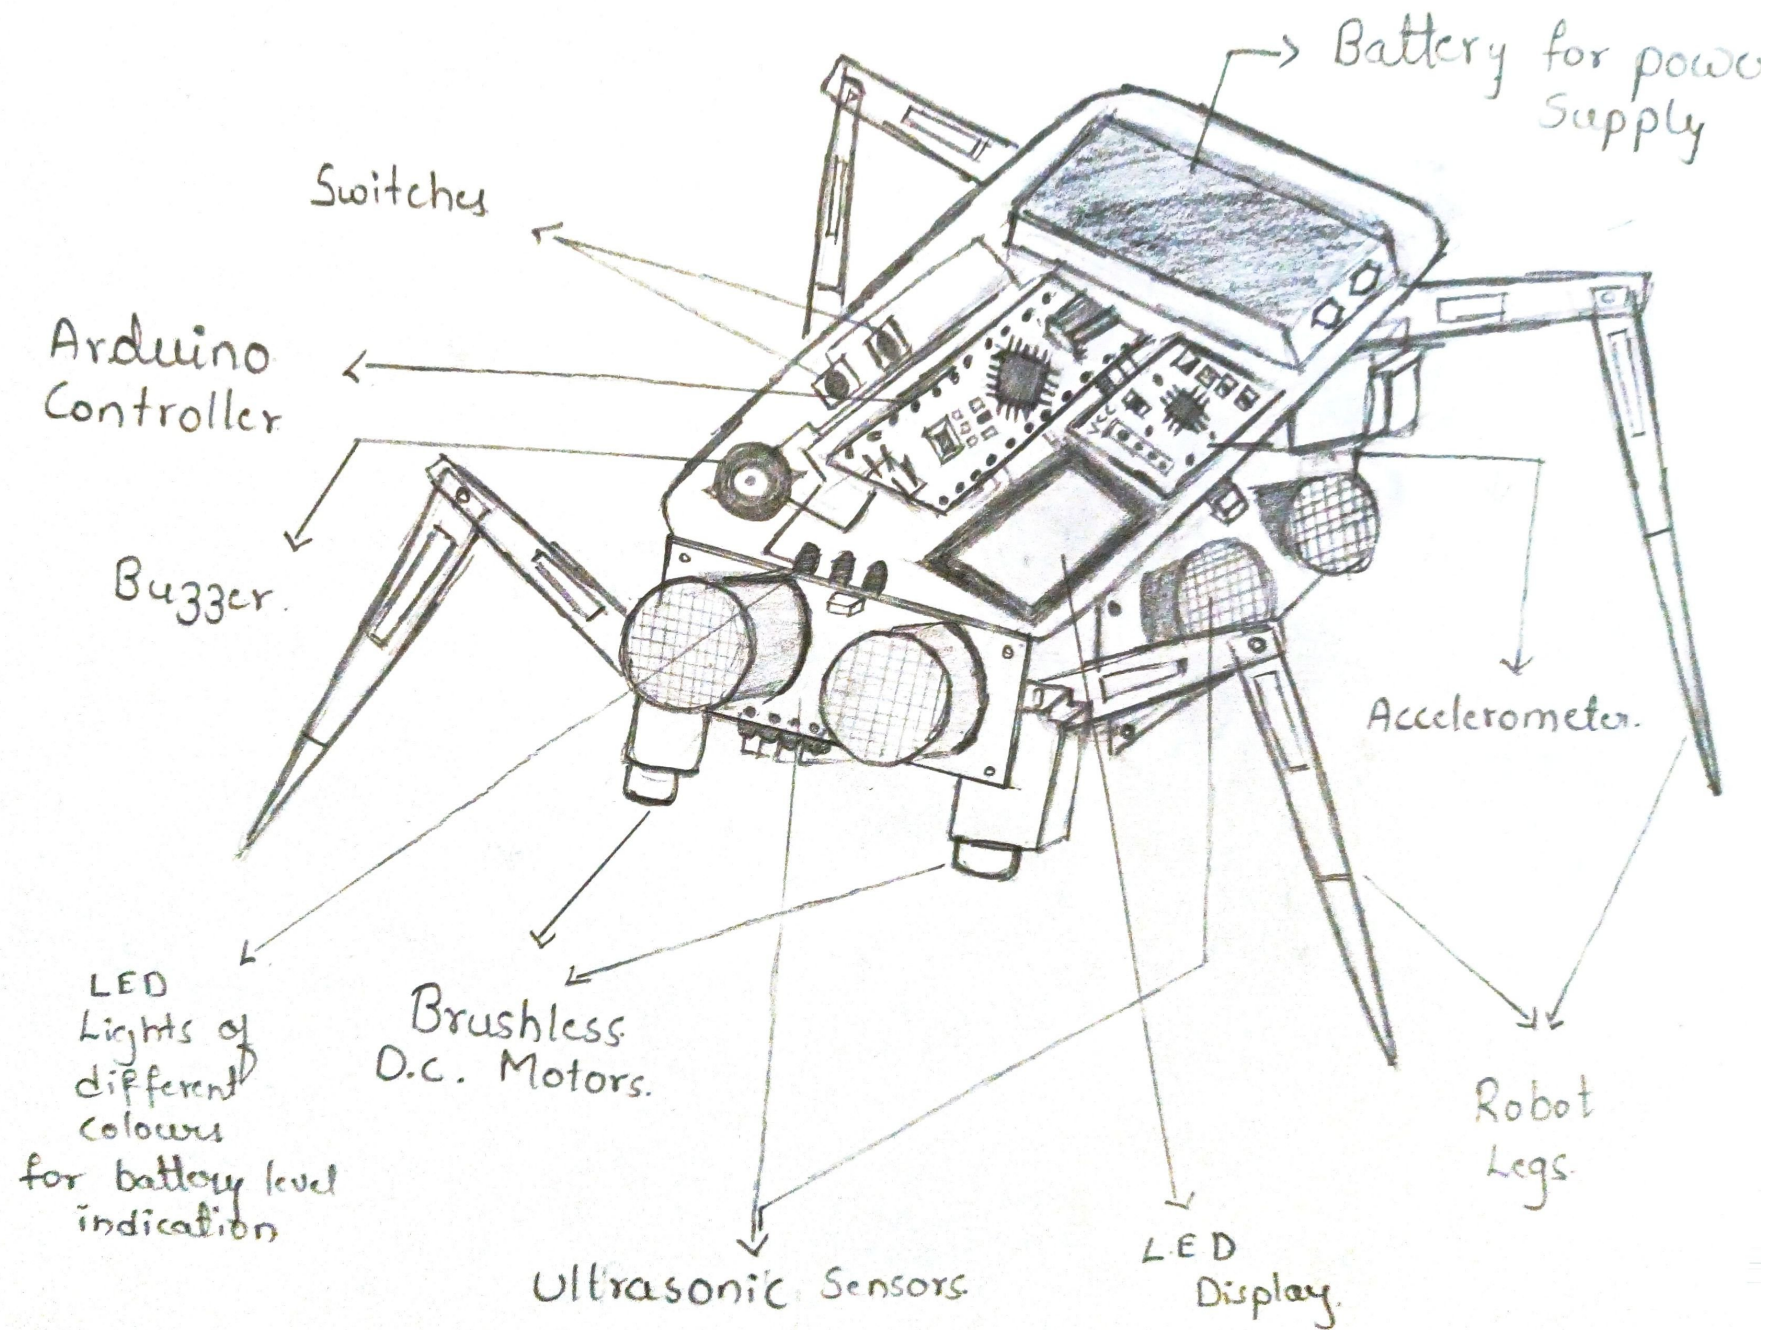 Battery for powe
Supply
Switches
Arduino
Controller
Buzzer.
VCC
Accelerometer.
LED
Lights of
different
colours
for battery level
indication
Brushless
D.C. Motors.
Robot
Legs.
Ultrasonic Sensors.
L.E.D
Display.